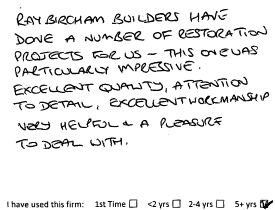 RAY BIRCHAM BUILDERS HAVE
DONE A NUMBER OF RESTORATION
PROJECTS FOR US - THIS ONE WAS
PARTICULARLY IMPRESSIVE.
EXCELLENT QUALITY, ATTENTION
TO DETAIL, EXCELLENT WORKMANSHIP
VERY HELPFUL & A PLEASURE
TO DEAL WITH.
I have used this firm: 1st Time ☐ <2 yrs ☐ 2-4 yrs ☐ 5+ yrs ☑